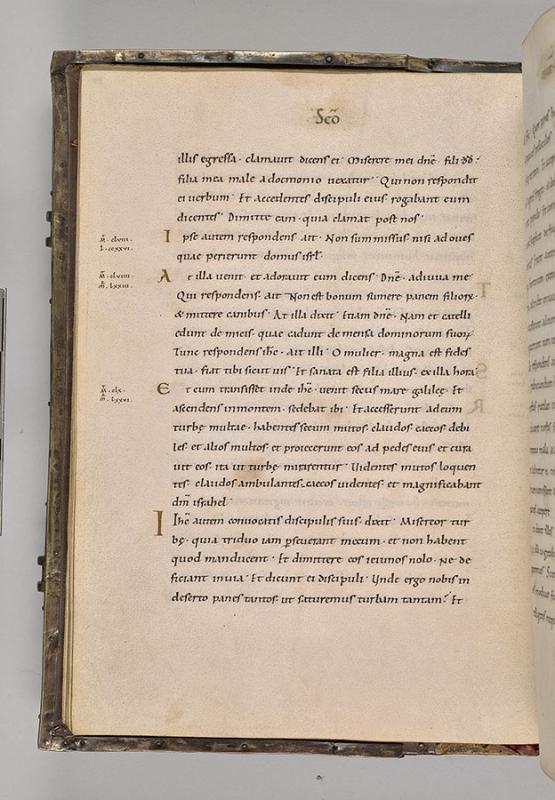 Scd̄
illis egressa · clamauit dicens ei · Miserere mei dn̄e · fili dd̄ ·
filia mea male a doemonio uexatur · Qui non respondit
ei uerbum · Et accedentes discipuli eius rogabant eum
dicentes · Dimitte eam · quia clamat post nos ·
m̄ · clviii · Ipse autem respondens ait · Non sum missus nisi ad oues
quae perierunt domus isrl̄ ·
At illa uenit · et adorauit eum dicens · Dn̄e · adiuua me ·
Qui respondens · ait · Non est bonum sumere panem filiorꝝ ·
& mittere canibus · At illa dixit · Etiam dn̄e · Nam et catelli
edunt de micis · quae cadunt de mensa dominorum suorꝝ ·
Tunc respondens ih̄c · ait illi · O mulier · magna est fides
tua · fiat tibi sicut uis · Et sanata est filia illius · ex illa hora ·
m̄ · clx · Et cum transisset inde ih̄c · uenit secus mare galileę · Et
ascendens in montem · sedebat ibi · Et accesserunt ad eum
turbę multae · habentes secum mutos · claudos · caecos · debi
les · et alios multos · et proiecerunt eos ad pedes eius · et cura
uit eos · ita ut turbę mirarentur · Uidentes mutos loquen
tes · claudos ambulantes · caecos uidentes · et magnificabant
dm̄ israhel ·
Ih̄c autem conuocatis discipulis suis · dixit · Misereor tur
bę · quia triduo iam ꝑseuerant mecum · et non habent
quod manducent · Et dimittere eos ieiunos nolo · Ne de
ficiant in uia · Et dicunt ei discipuli · Unde ergo nobis in
deserto panes tantos · ut saturemus turbam tantam? Et